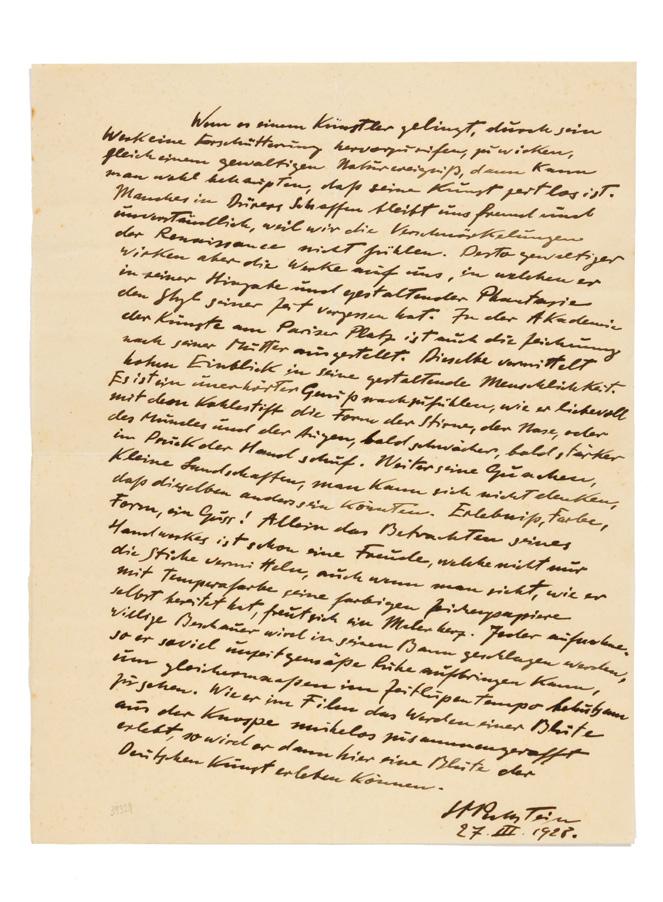 Wenn es einem Künstler gelingt, durch sein
Werk eine Erschütterung hervorzurufen, zu wirken,
gleich einem gewaltigen Naturereigniß, dann kann
man wohl behaupten, daß seine Kunst zeitlos ist.
Manches in Dürers Schaffen bleibt uns fremd und
unverständlich, weil wir die Verschnörkelungen
der Renaissance nicht fühlen. Desto gewaltiger
wirken aber die Werke auf uns, in welchen er
in seiner Hingabe und gestaltender Phantasie
den Styl seiner Zeit vergessen hat. In der Akademie
der Künste am Pariser Platz ist auch die Zeichnung
nach seiner Mutter ausgestellt. Dieselbe vermittelt
hohen Einblick in seine gestaltende Menschlichkeit.
Es ist ein unerhörter Genuß nachzufühlen, wie er liebevoll
mit dem Kohlestift die Form der Stirne, der Nase, oder
des Mundes und der Augen, bald schwächer, bald stärker
im Druck der Hand schuf. Weiter seine Guachen,
kleine Landschaften, man kann sich nicht denken,
daß dieselben anders sein könnten. Erlebniß, Farbe,
Form, ein Guss! Allein das Betrachten seines
Handwerkes ist schon eine Freude, welche nicht nur
die Stiche vermitteln, auch wenn man sieht, wie er
mit Temperafarbe seine farbigen Zeichenpapiere
selbst bereitet hat, freut sich ein Malerherz. Jeder aufnahme-
willige Beschauer wird in seinen Bann geschlagen werden,
so er soviel unzeitgemäße Ruhe aufbringen kann,
um gleichermaaßen im Zeitlupentempo behutsam
zu sehen. Wie er im Film das Werden einer Blüte
aus der Knospe mühelos zusammengerafft
erlebt, so wird er dann hier eine Blüte der
Deutschen Kunst erleben können.
HMPechstein
27. III. 1928.